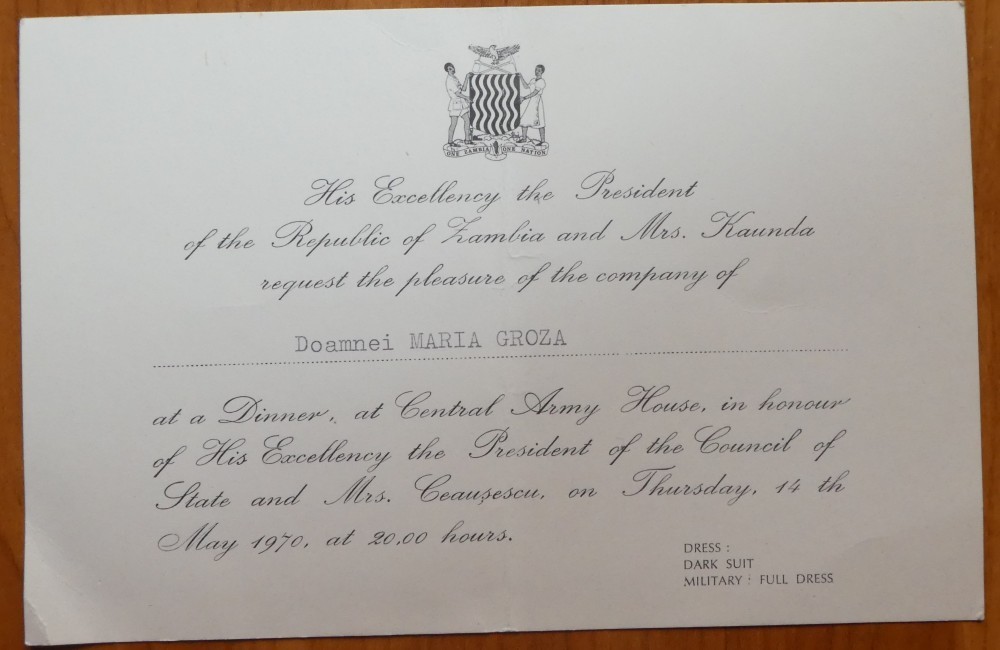 ONE ZAMBIA ONE NATION
His Excellency the President
of the Republic of Zambia and Mrs. Kaunda
request the pleasure of the company of
Doamnei MARIA GROZA
at a Dinner, at Central Army House, in honour
of His Excellency the President of the Council of
State and Mrs. Ceaușescu, on Thursday, 14 th
May 1970, at 20,00 hours.
DRESS :
DARK SUIT
MILITARY : FULL DRESS